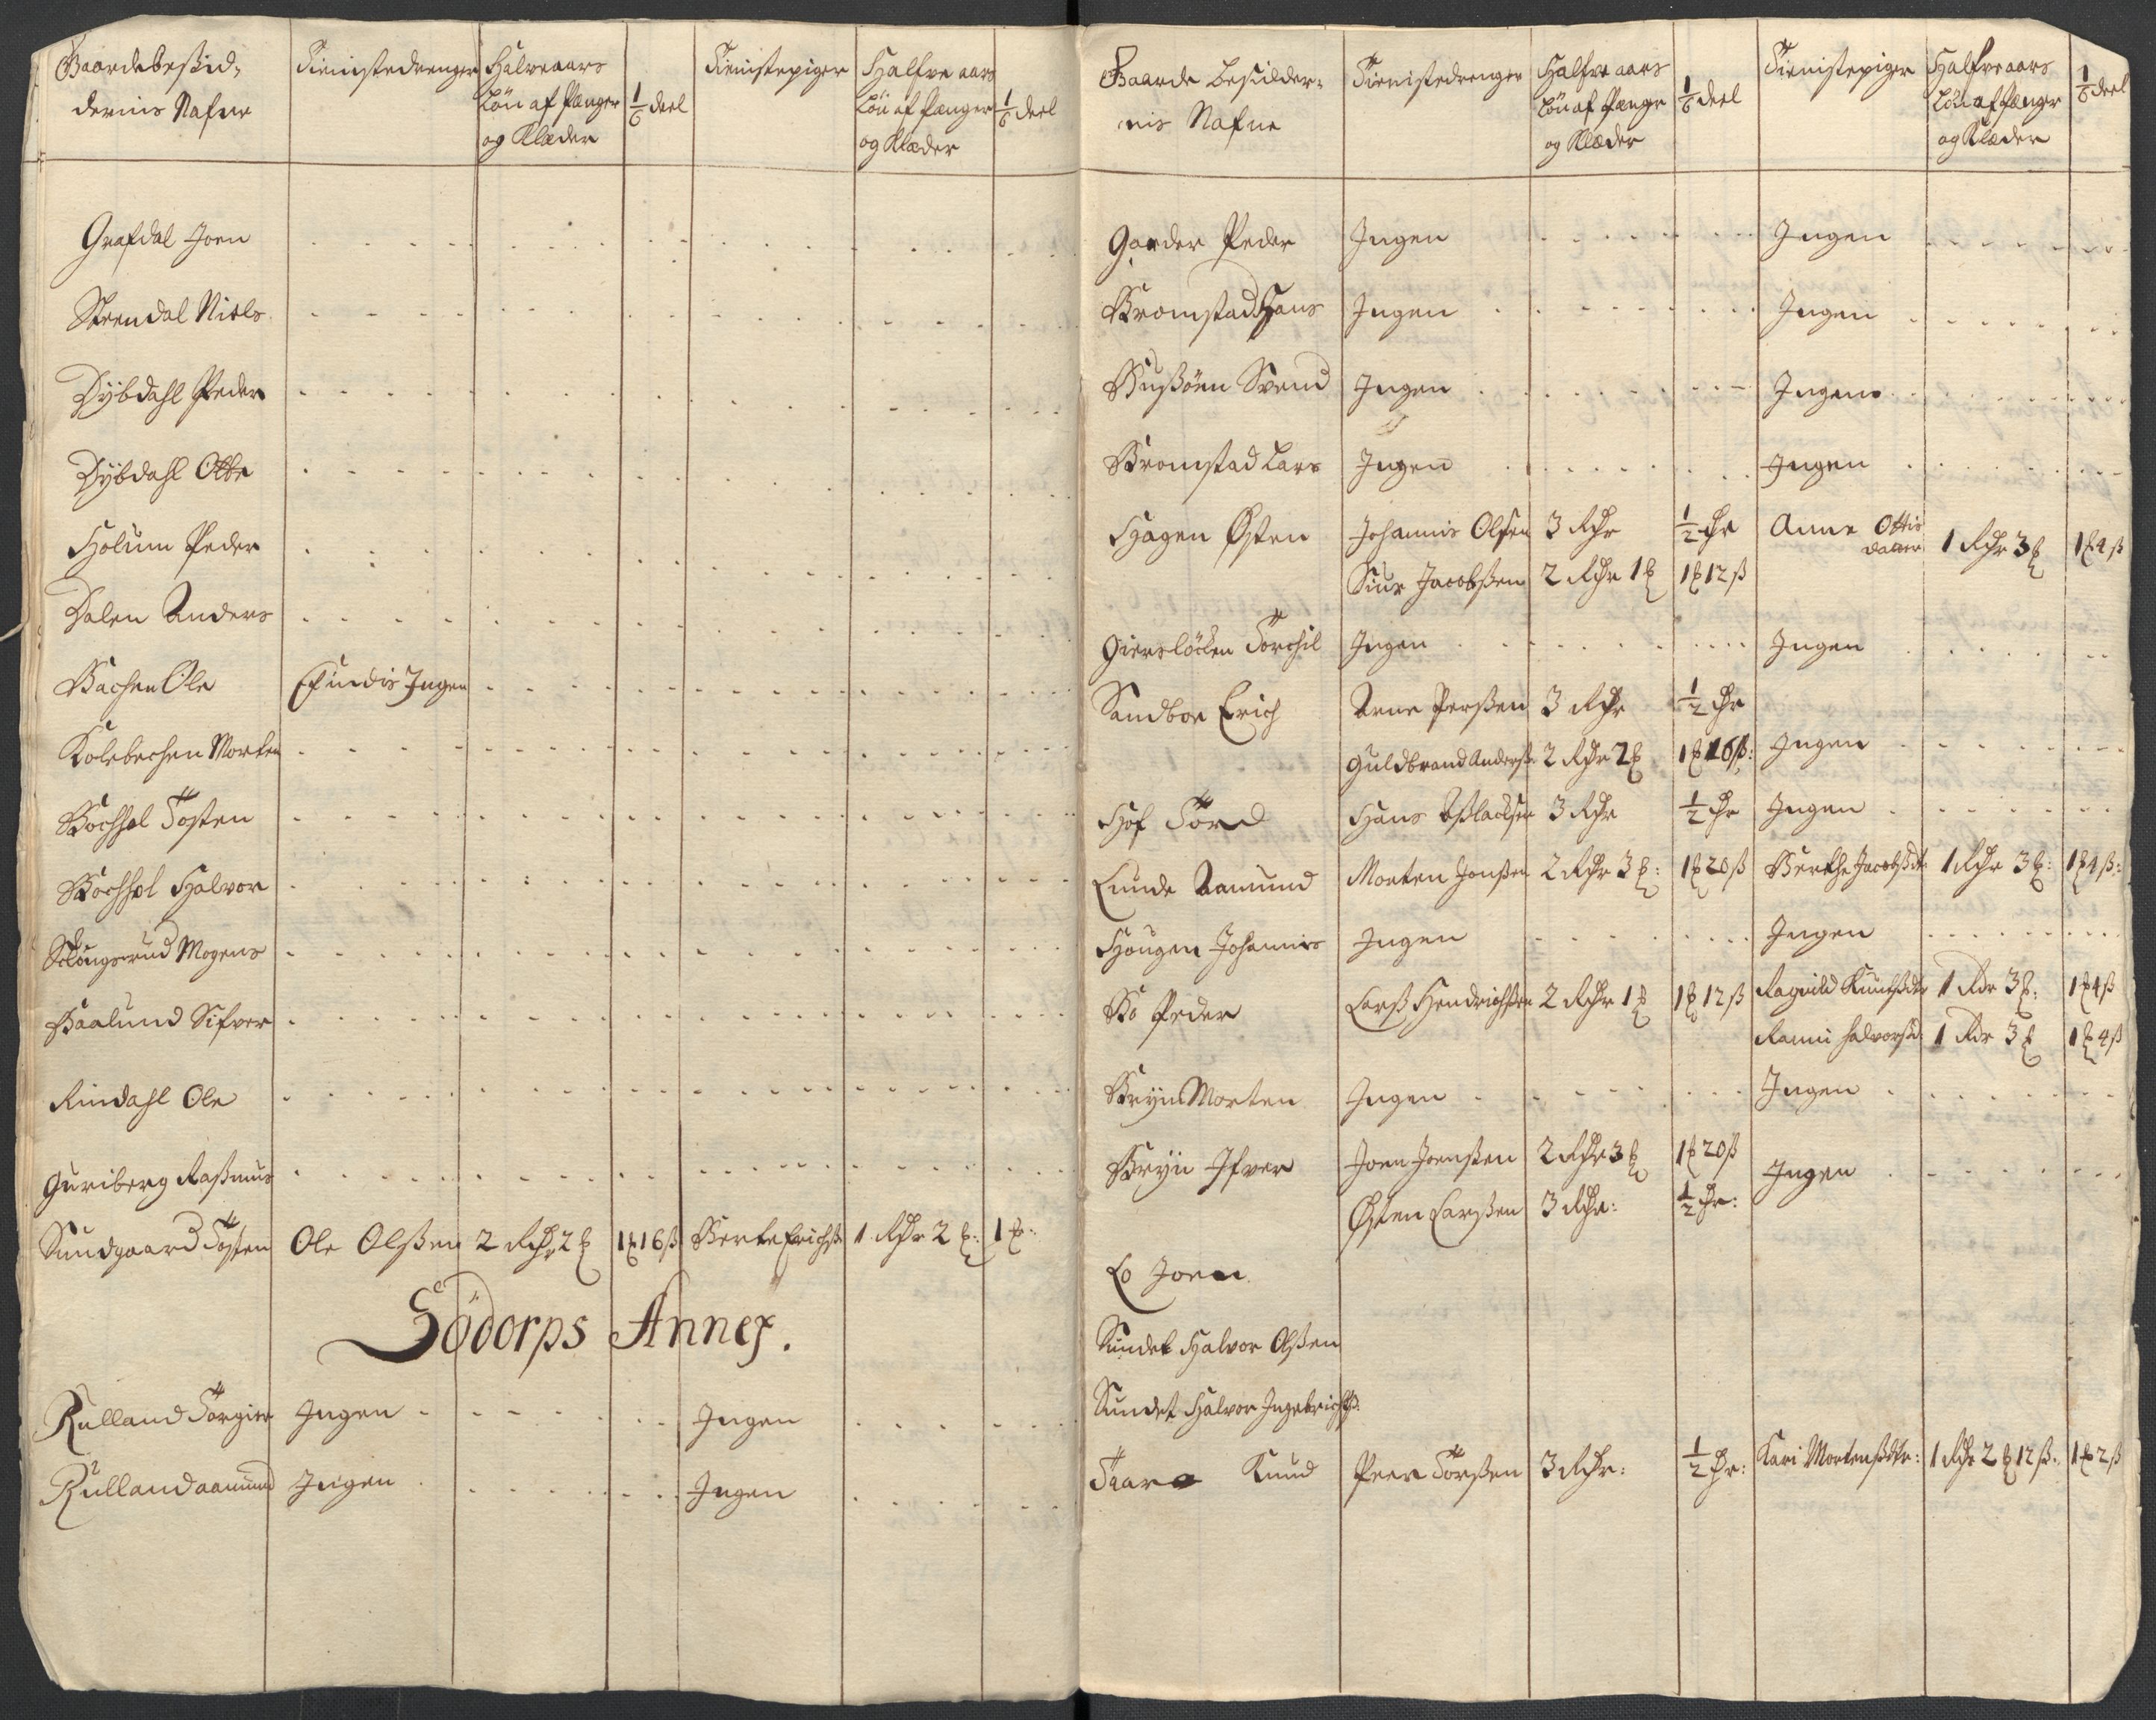 Gaardebesid,
dernis Nafne
Tienistedrenger
Halve aars
Lön af Penger
og Klæder
1/6 deel
Tienistepiger
Halfve aars
Lön af Penger
og Klæder
1/6 deel
Grafdal Joen
Strendal Niels
Dÿbdahl Peder
Dÿbdahl Otte
Holum Peder
Dalen Anders
Bachen Ole Efundis Ingen
Kolebechen Morten
Bochhol Tosten
Bochhol Halvor
Sclongsrud Mogens
Baalund Sifver
Rindahl Ole
Guriberg Rasmus
Sundgaard Tosten Ole Olßen 2 Rdr 2 ₰ 1 ₰ 16 ß Berte Erichß 1 Rdr 2 ₰: 1 ₰:
Södorps Annex.
Rulland Torgier Ingen Ingen
Rulland aamund Ingen Ingen
Gaarde besidder-
nis Nafne
Tienistedrenger
Halfve aars
Lön af Penge
og Klæder
1/6 deel
Tienistepiger
Halfve aars
Lön af Penger
og Klæder
1/6 deel
Garder Peder Ingen Ingen
Bromstad Hans Ingen Ingen
Bußöen Svend Ingen Ingen
Bromstad Lars Ingen Ingen
Hagen Østen Johannis Olsen 3 Rdr 1/2 dr Anne Ottis
datter 1 Rdr 3 ₰ 1 ₰ 4 ß
Siur Jacobßen 2 Rdr 1 ₰ 1 ₰ 12 ß
Giersløcken Torchil Ingen Ingen
Sandboe Erich Arne Perßen 3 Rdr 1/2 dr
Guldbrand Anderß: 2 Rdr 2 ₰ 1 ₰ 16 ß: Ingen
Hof Tord Hans Aßlacksen 3 Rdr 1/2 dr Ingen
Lunde Aamund Morten Jonßen 2 Rdr 3 ₰: 1 ₰ 20 ß Berthe Jacobßdtr 1 Rdr 3 ₰: 1 ₰ 4 ß:
Hougen Johannis Ingen Ingen
Bö Peder Larß Hendrichßen 2 Rdr 1 ₰ 1 ₰ 12 ß Ragnild Knutßdtr 1 Rdr 3 ₰: 1 ₰ 4 ß
Ranni halvorßd: 1 Rdr 3 ₰ 1 ₰ 4 ß
Bryn Morten Ingen Ingen
Bryn Ifver Joen Joenßen 2 Rdr 3 ₰ 1 ₰ 20 ß Ingen
Østen Larßen 3 Rdr: 1/2 dr:
Lo Joen
Sundet Halvor Olßen
Sundet Halvor Ingebrichtß:
Knud Peer Torßen 3 Rdr: 1/2 dr: Kari Mortenßdtr: 1 Rdr 2 ₰ 12 ß: 1 ₰ 2 ß